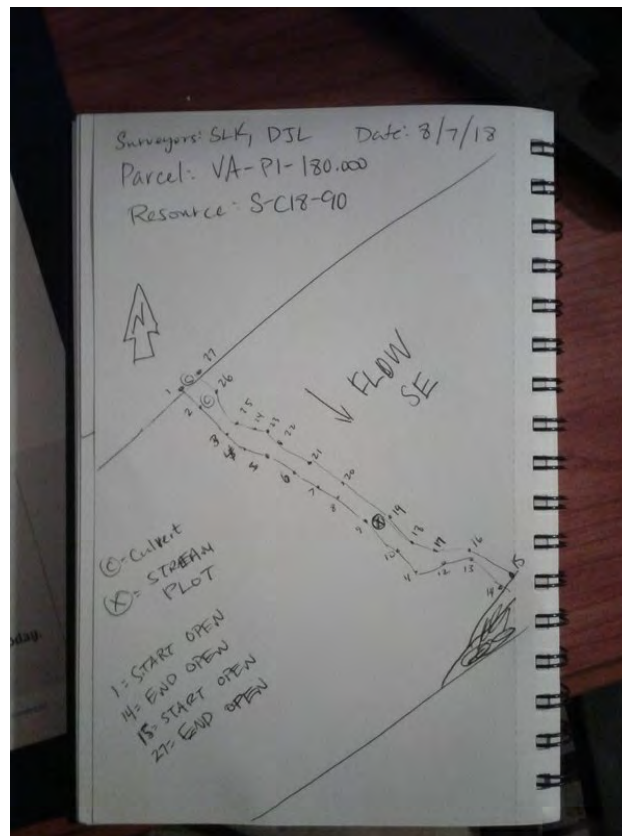 Surveyors: SLK, DJL Date: 8/7/18
Parcel: VA-PI-180.000
Resource: S-C18-90
N
FLOW
SE
27
C
1
26
2
C
25
24
23
22
3
4
5
21
6
20
7
8
19
9
X
18
10
17
16
11
12
13
15
14
C - Culvert
X = STREAM
PLOT
1 = START OPEN
14 = END OPEN
15 = START OPEN
27 = END OPEN
oday.